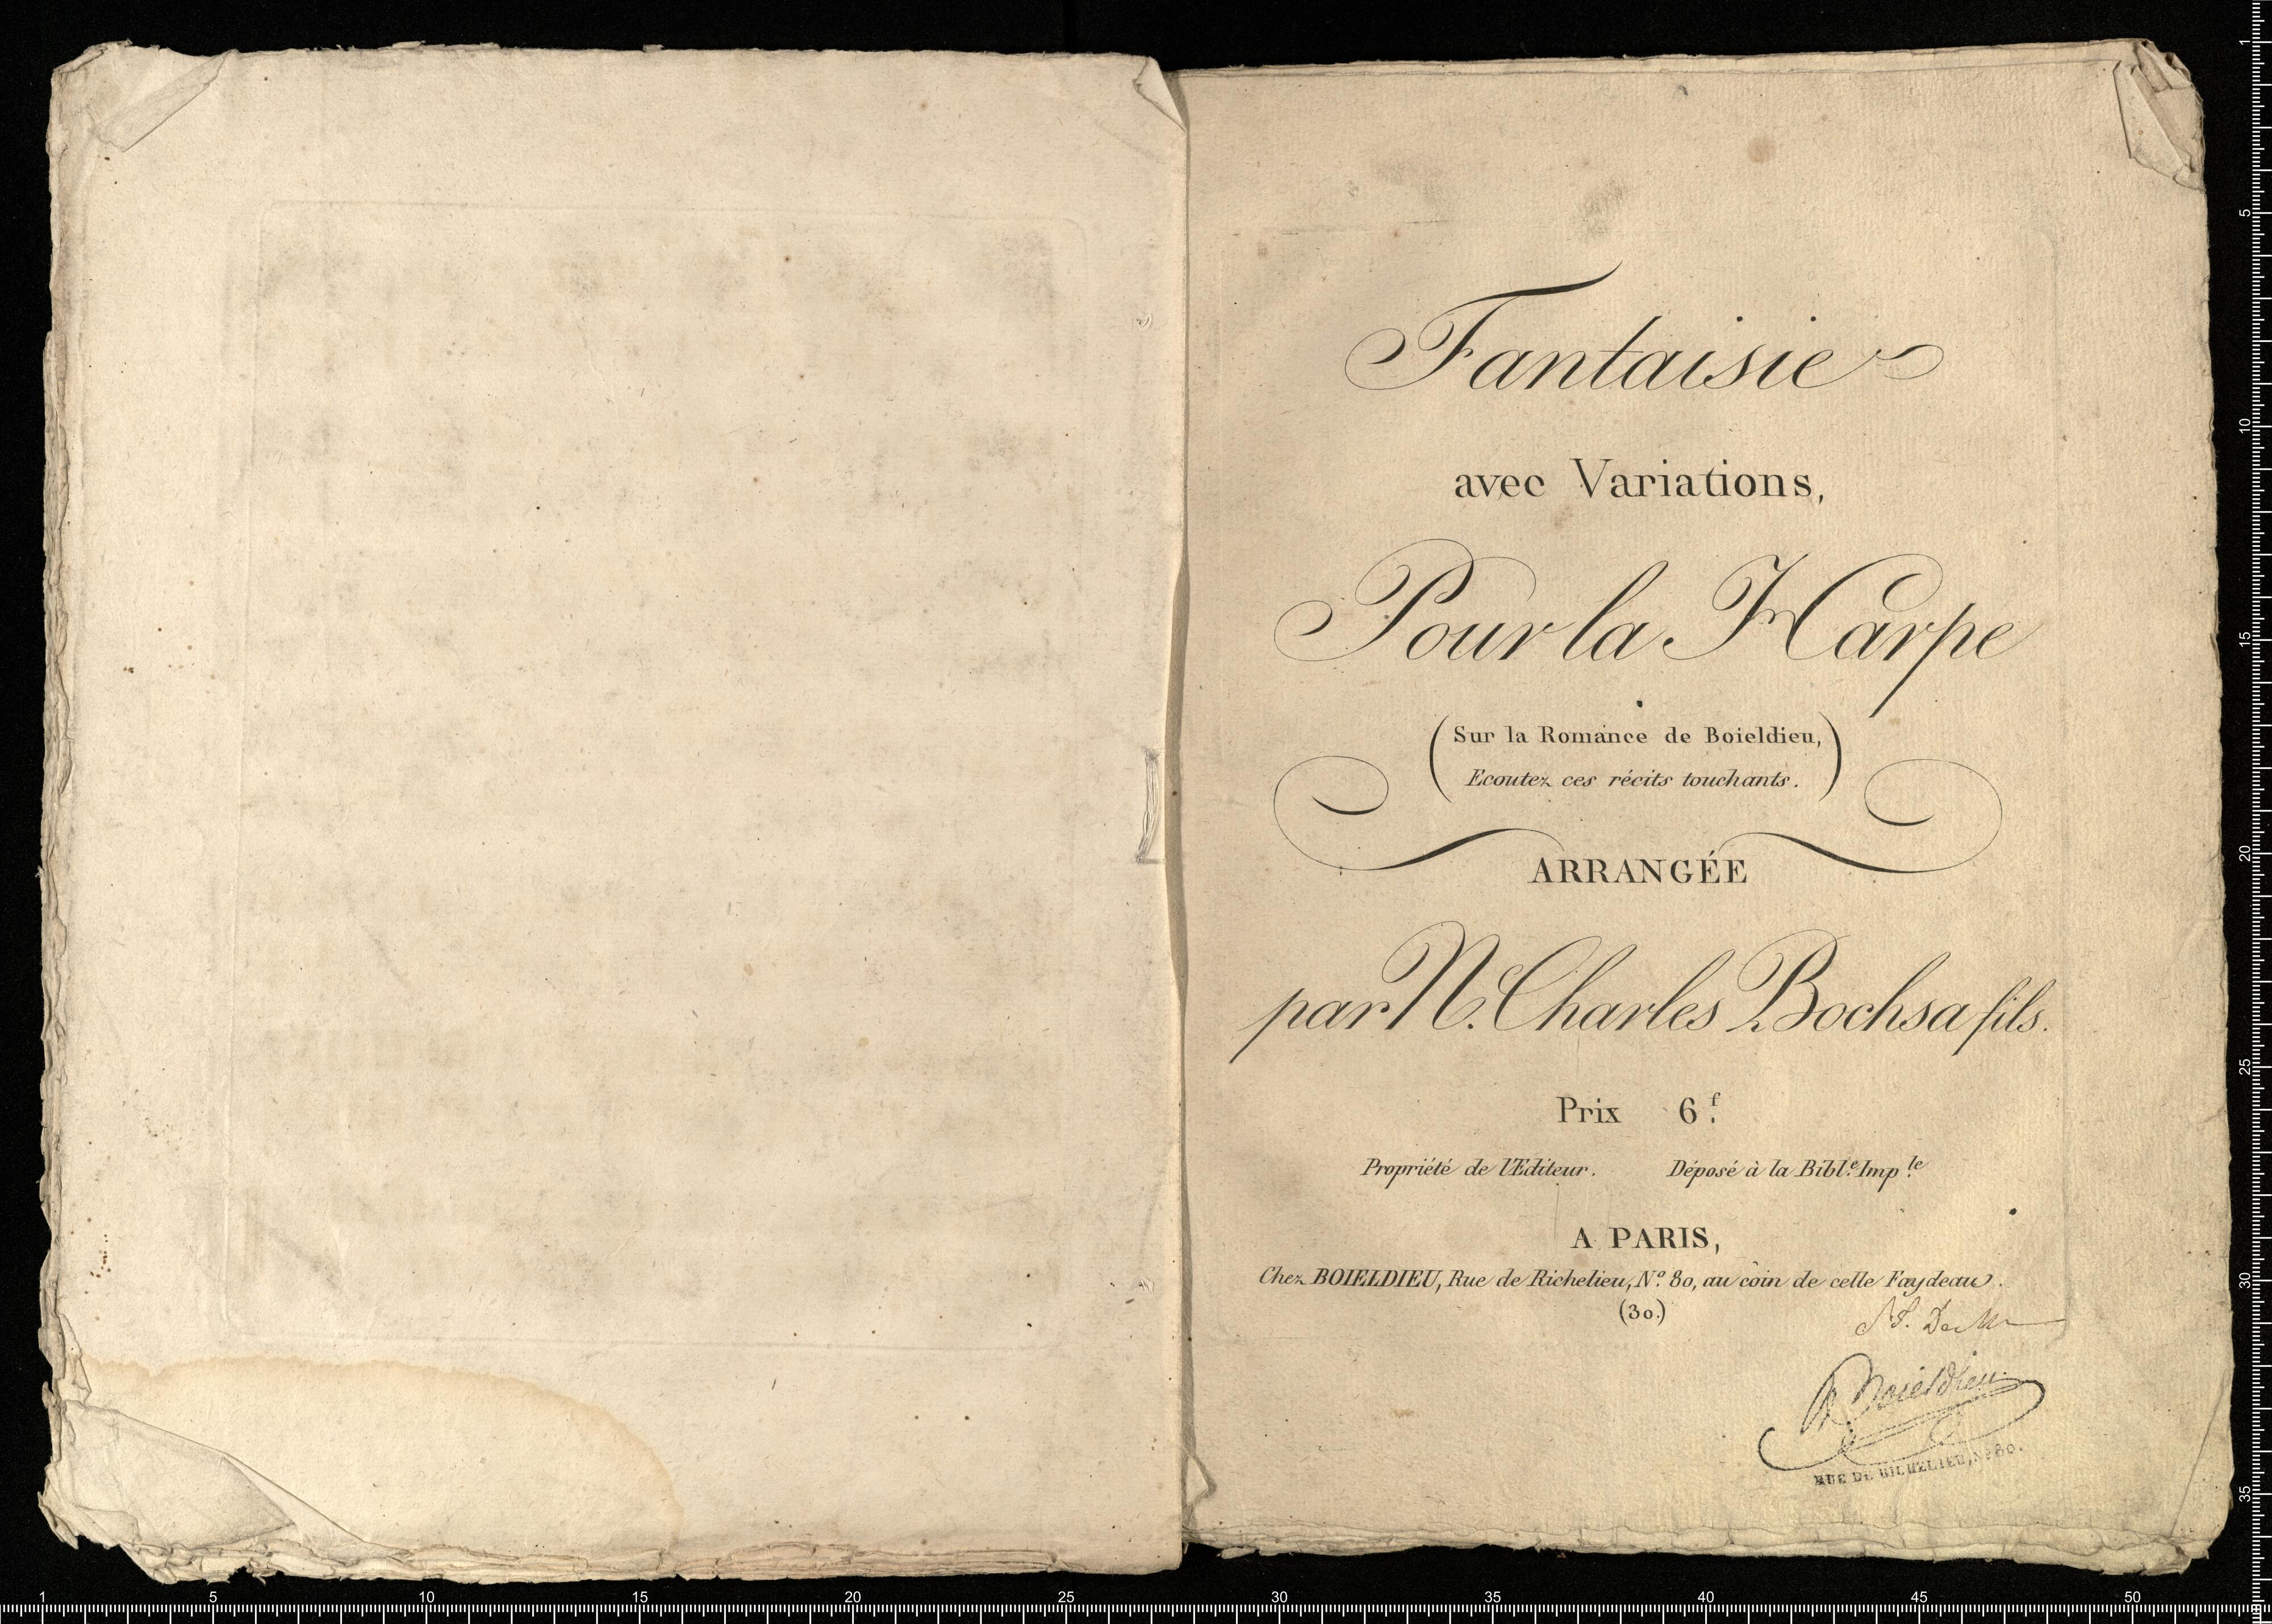 Fantaisie
avec Variations,
Pour la Harpe
(Sur la Romance de Boieldieu,
Ecoutez ces récits touchants.)
ARRANGÉE
par N. Charles Bochsa fils.
Prix 6.f
Propriété de l'Editeur. Déposé à la Bibl.e Imp.le
A PARIS,
Chez BOIELDIEU, Rue de Richelieu, N.o 80, au coin de celle Faydeau.
(30.)
Boieldieu
RUE DE RICHELIEU, N.o 80.
1
5
10
15
20
25
30
35
1 5 10 15 20 25 30 35 40 45 50